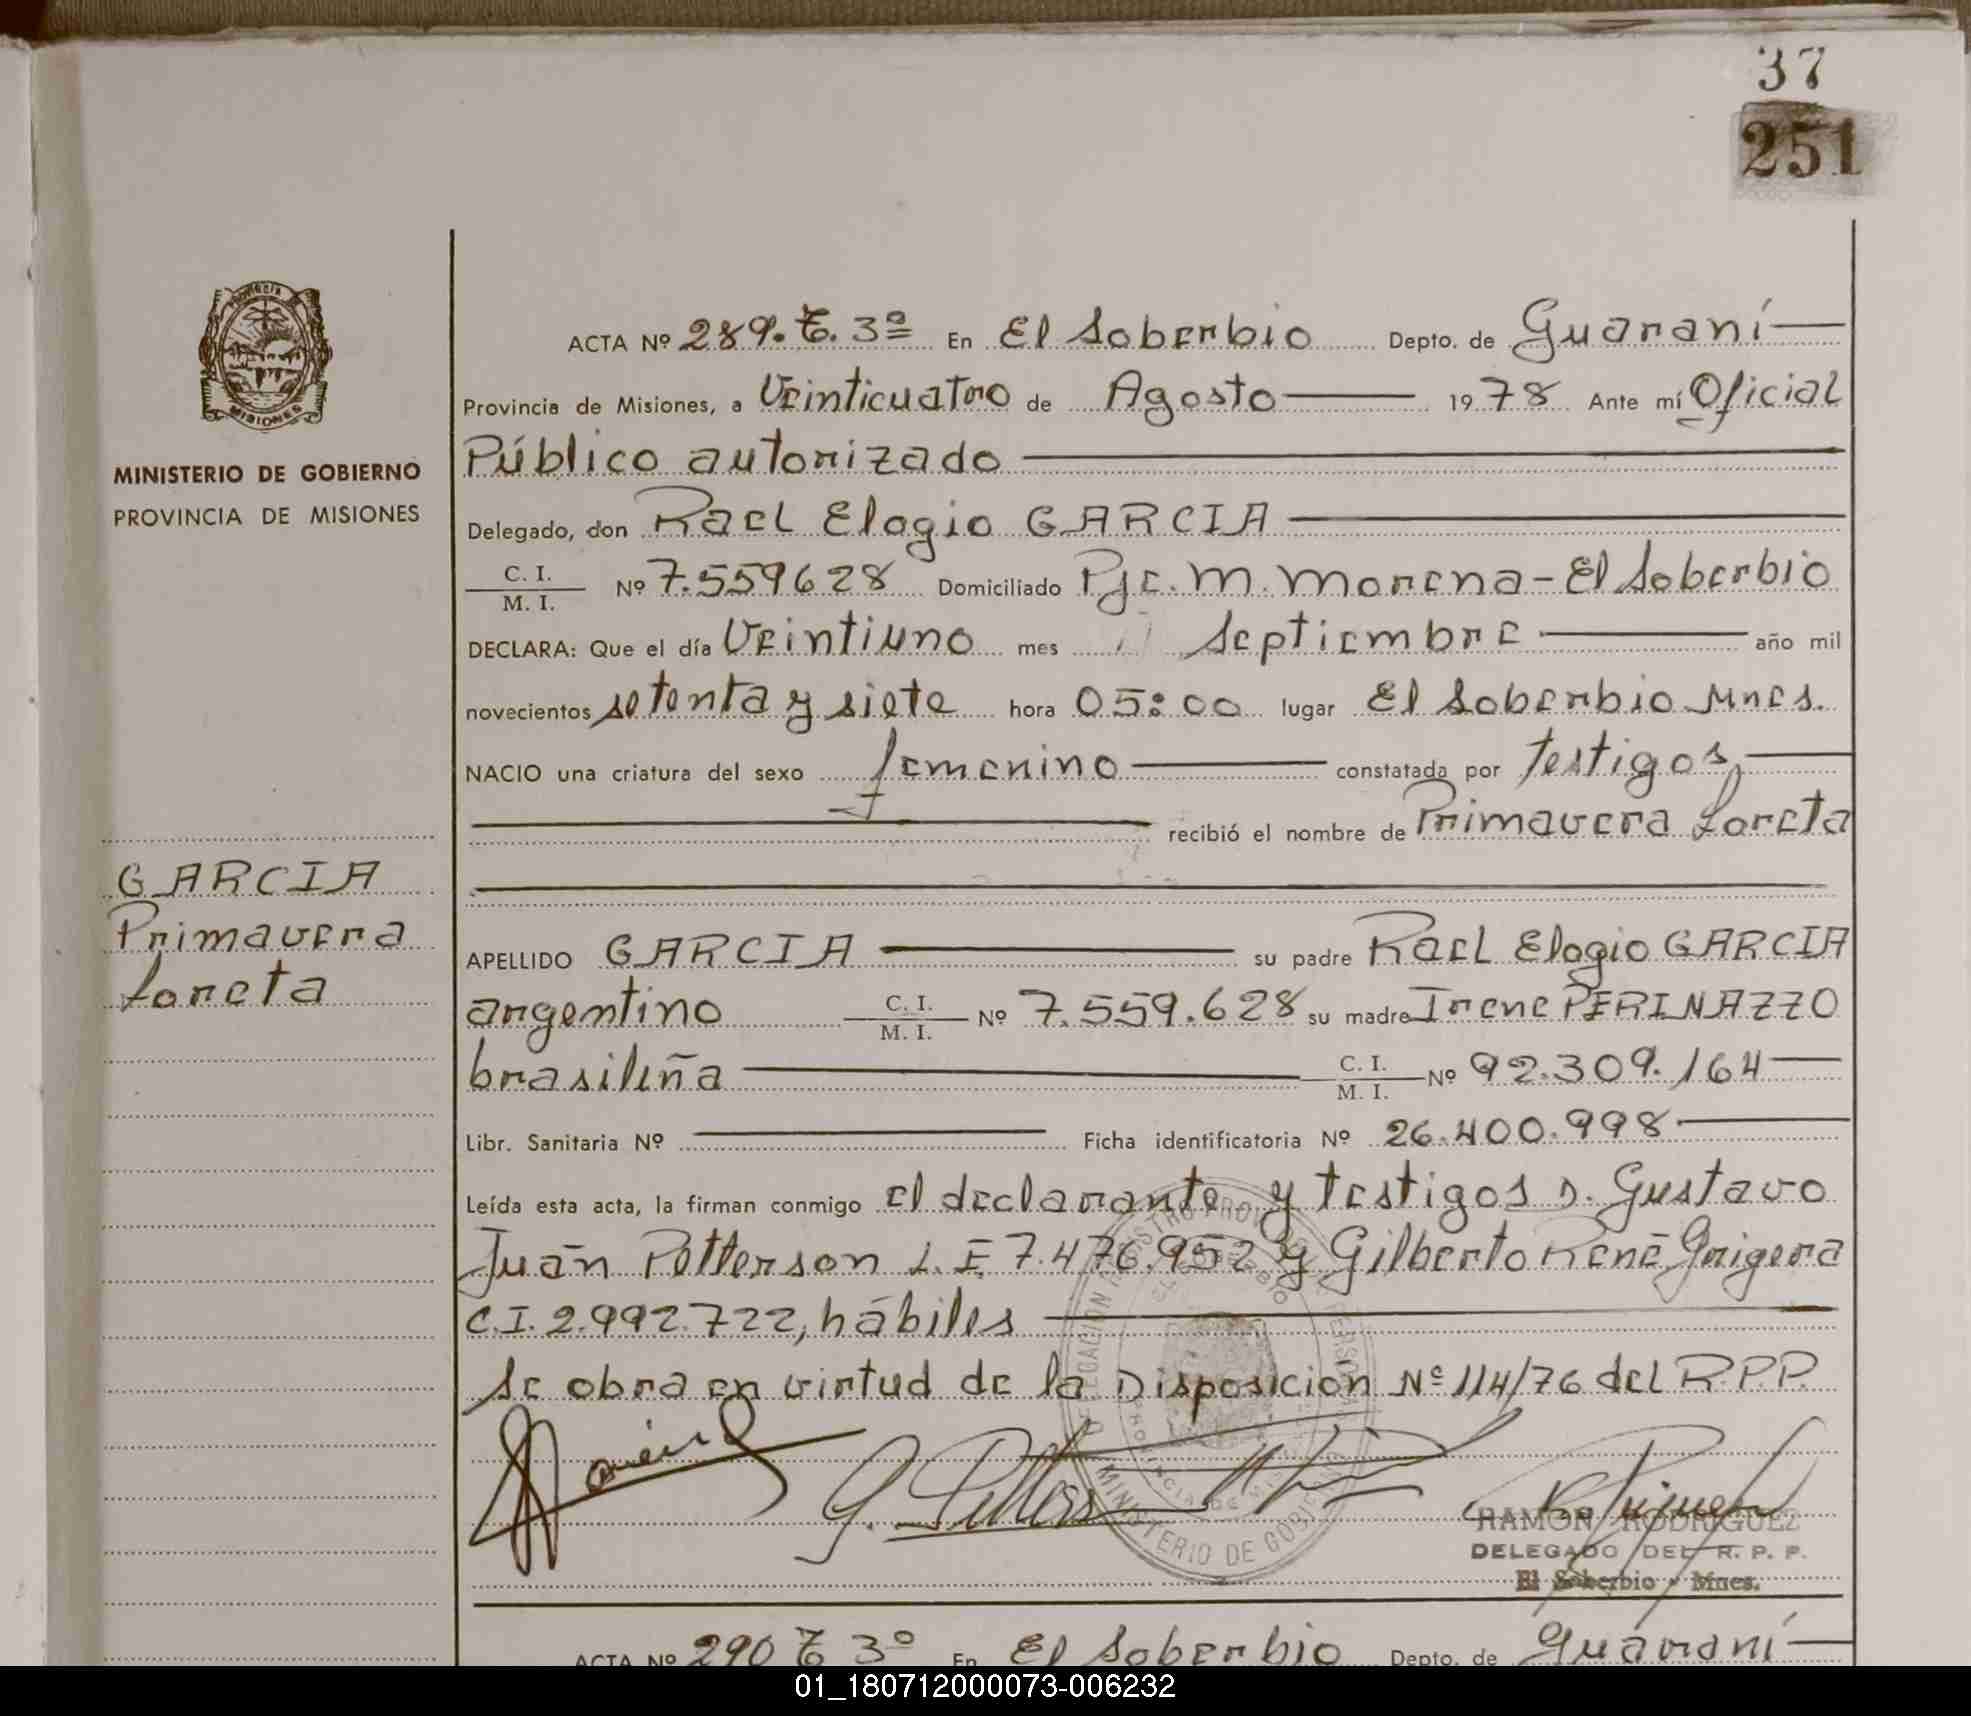 37
251
PROVINCIA DE
MISIONES
MINISTERIO DE GOBIERNO
PROVINCIA DE MISIONES
GARCIA
Primavera
Loreta
ACTA Nº 289. T. 3º En El Soberbio Depto. de Guaraní
Provincia de Misiones, a Veinticuatro de Agosto 1978 Ante mí Oficial
Público autorizado
Delegado, don Rael Elogio GARCIA
C. I.
M. I. Nº 7.559628 Domiciliado Pje. M. Morena - El Soberbio
DECLARA: Que el día Veintiuno mes Septiembre año mil
novecientos setenta y siete hora 05:00 lugar El Soberbio Mnes.
NACIO una criatura del sexo femenino constatada por testigos
recibió el nombre de Primavera Loreta
APELLIDO GARCIA su padre Rael Elogio GARCIA
argentino C. I.
M. I. Nº 7.559.628 su madre Irene PERINAZZO
brasileña C. I.
M. I. Nº 92.309.164
Libr. Sanitaria Nº Ficha identificatoria Nº 26.400.998
Leída esta acta, la firman conmigo el declarante y testigos D. Gustavo
Juan Petterson L.E. 7.476.952 y Gilberto René Grigera
C.I. 2.992.722, hábiles
Se obra en virtud de la Disposición Nº 114/76 del R.P.P.
MINISTERIO DE GOBIERNO
RAMON RODRIGUEZ
DELEGADO DEL R. P. P.
El Soberbio - Mnes.
ACTA Nº 290 T 3º En El Soberbio Depto. de Guaraní
01_180712000073-006232